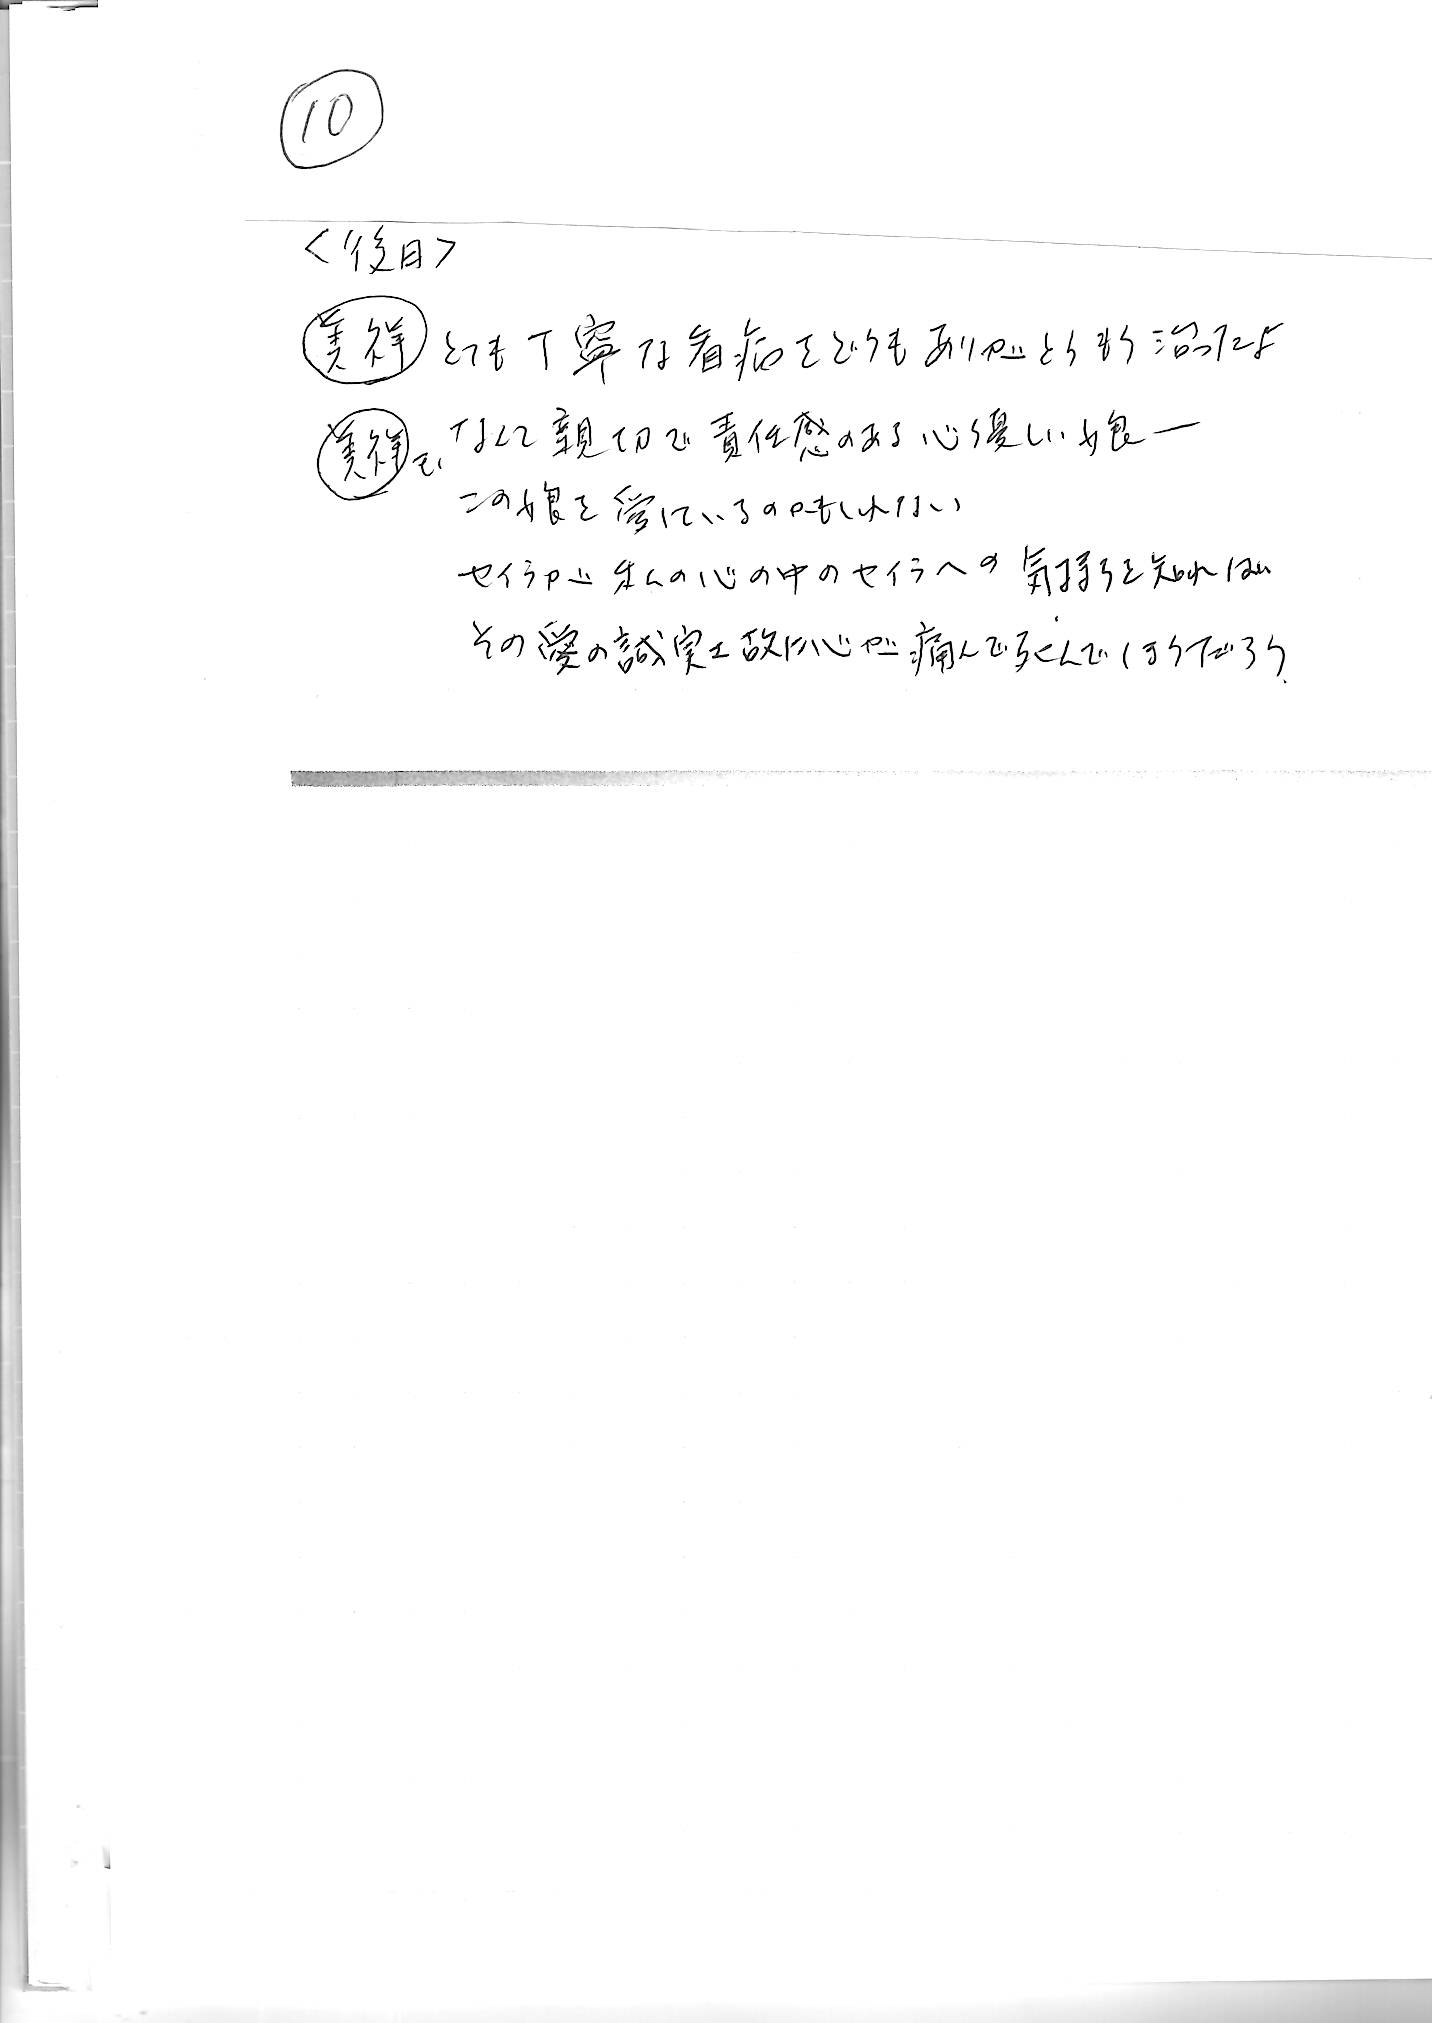 10
<後日>
美祥 とても丁寧な看病をどうもありがとうもう治ったよ
美祥モ、なんて親切で責任感のある心優しい娘ー
この娘を愛しているのかもしれない
セイラが私の心の中のセイラへの気持ちを知れば
その愛の誠実さ故に心が痛んで死んでしまうだろう.